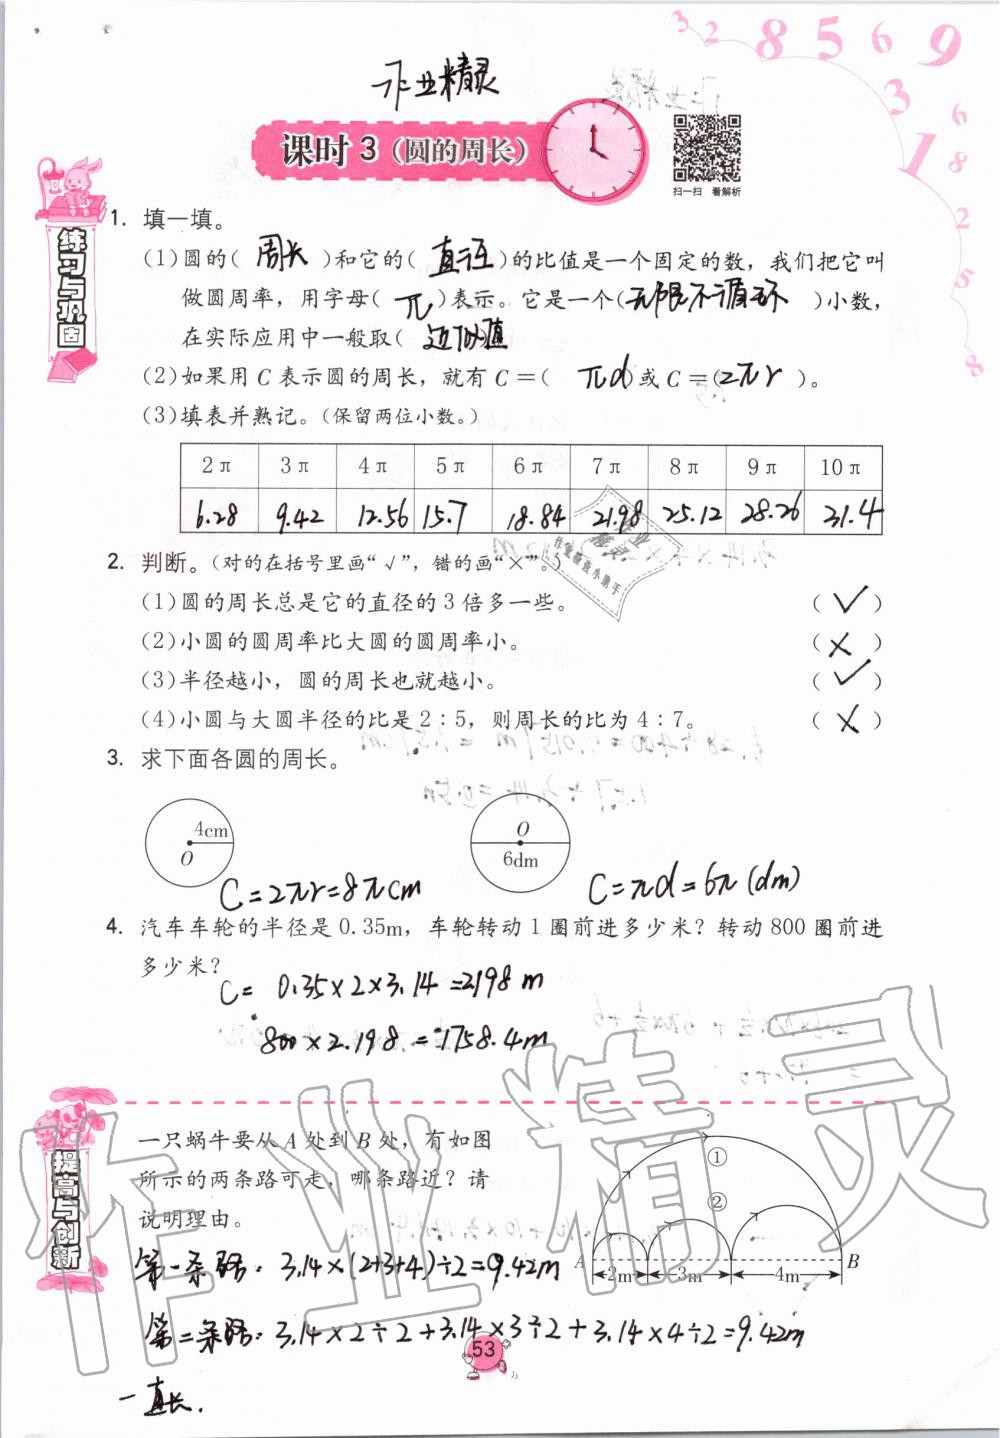 3 2 8 5 6 9
3 1 6 8 2 5 8
作业精灵
课时 3（圆的周长）
扫一扫 看解析
练习与巩固
1. 填一填。
(1)圆的( 周长 )和它的( 直径 )的比值是一个固定的数，我们把它叫
做圆周率，用字母( π )表示。它是一个(无限不循环 )小数，
在实际应用中一般取( 近似值
(2)如果用 C 表示圆的周长，就有 C＝( πd )或 C＝(2πr )。
(3)填表并熟记。(保留两位小数。)
2π 3π 4π 5π 6π 7π 8π 9π 10π
6.28 9.42 12.56 15.7 18.84 21.98 25.12 28.26 31.4
2. 判断。(对的在括号里画“√”，错的画“×”。)
(1)圆的周长总是它的直径的 3 倍多一些。 ( √ )
(2)小圆的圆周率比大圆的圆周率小。 ( × )
(3)半径越小，圆的周长也就越小。 ( √ )
(4)小圆与大圆半径的比是 2：5，则周长的比为 4：7。 ( × )
3. 求下面各圆的周长。
4cm
O
O
6dm
C=2πr=8πcm
C=πd=6π(dm)
4. 汽车车轮的半径是 0.35m，车轮转动 1 圈前进多少米？转动 800 圈前进
多少米？
C= 0.35×2×3.14=2198 m
800×2.198=1758.4m
提高与创新
一只蜗牛要从 A 处到 B 处，有如图
所示的两条路可走，哪条路近？请
说明理由。
①
②
A B
2m 3m 4m
第一条路：3.14×(2+3+4)÷2=9.42m
第二条路：3.14×2÷2+3.14×3÷2+3.14×4÷2=9.42m
53
一直长.
作业精灵